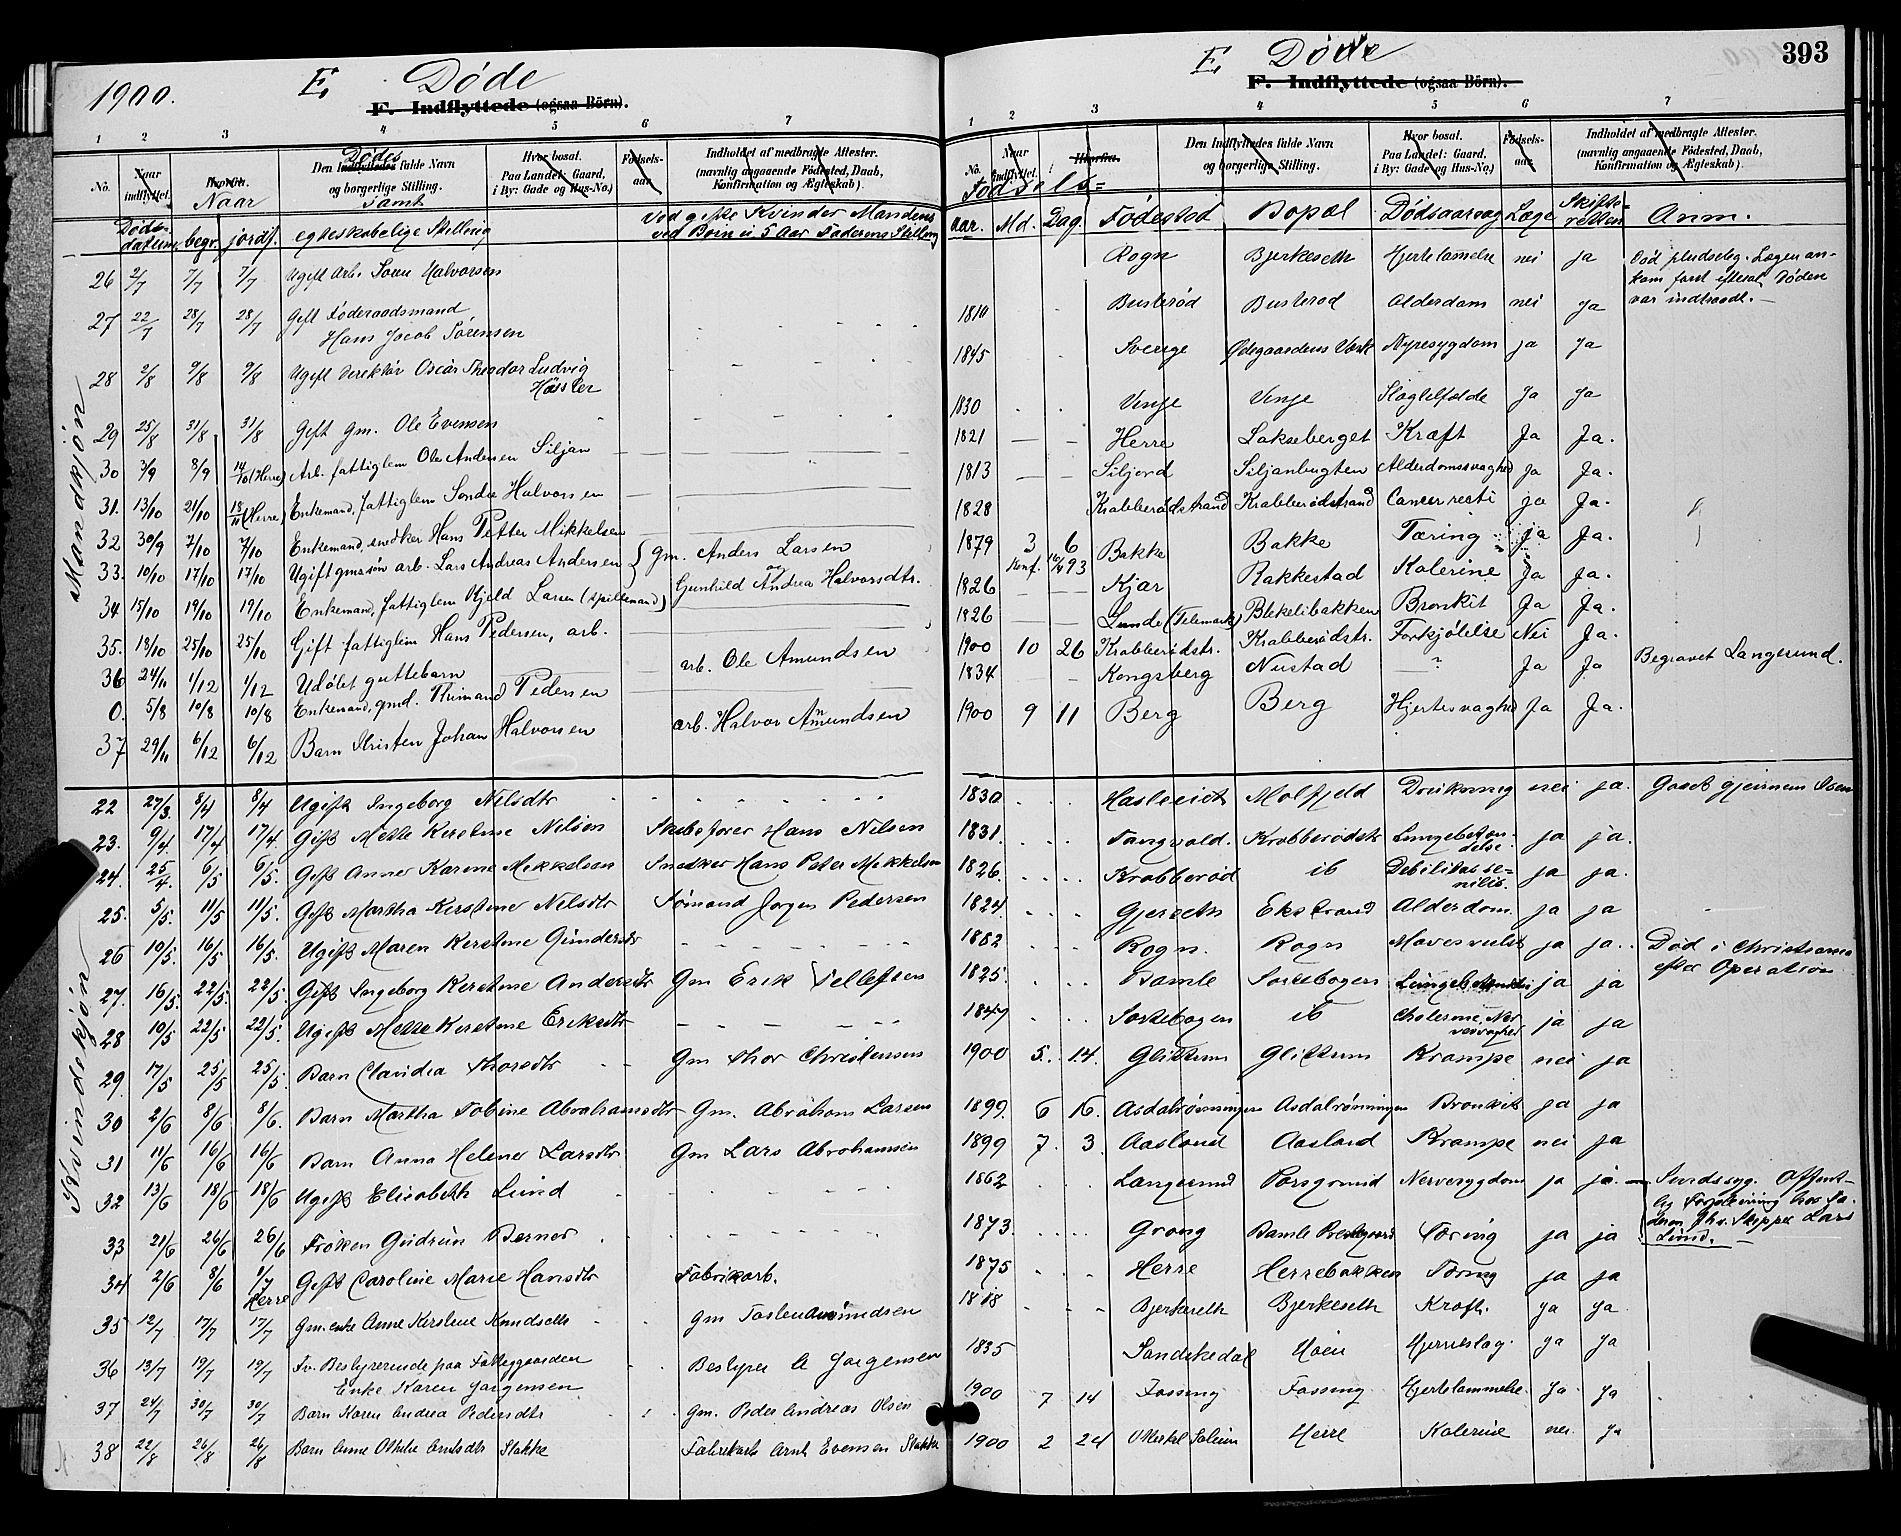 1900.
E. Døde
F. Indflyttede (ogsaa Börn).
1 2 3 4 5 6 7
No. Naar indflyttet. Hvorfra. Den Indflyttedes fulde Navn og borgerlige Stilling. Hvor bosat. Paa Landet: Gaard, i By: Gade og Hus-No.) Fødsels-aar. Indholdet af medbragte Attester. (navnlig angaaende Fødested, Daab, Konfirmation og Ægteskab).
Naar Dødes samt
Døds-datum begr. jordf. egteskabelige Stilling Ved gifte Kvinder Mandens ved Børn u 5 Aar Faderens Stilling
Mandkjøn
26 2/7 7/7 7/7 Ugift Arb. Søren Halvorsen
27 22/7 28/7 28/7 Gift Föderaadsmand
Hans Jacob Sörensen
28 2/8 9/8 9/8 Ugift Direktör Oscar Theodor Ludvig
Hässler
29 25/8 31/8 31/8 Gift Gm. Ole Evensen
30 3/9 8/9 (Herre) Arb. fattiglem Ole Andersen Siljan
31. 13/10 21/10 18/11 (Herre) Enkemand, fattiglem Sondre Halvorsen
32 30/9 7/10 7/10 Enkemand, snedker Hans Petter Mikkelsen
33. 10/10 17/10 17/10 Ugift gmssøn arb. Lars Andreas Andersen { gm. Anders Larsen
og
34 15/10 19/10 19/10 Enkemand, fattiglem Kjeld Larsen (spillemand) Gunhild Andrea Halvorsdtr.
35. 18/10 25/10 25/10 Gift fattiglem Hans Pedersen, arb.
36 24/11 1/12 1/12 Udöbt guttebarn arb. Ole Amundsen
0. 5/8 10/8 10/8 Enkemand, gmd. Thrimand Pedersen
37 29/11 6/12 6/12 Barn Kristen Johan Halvorsen arb. Halvor Amundsen
Kvindekjøn
22 27/3. 8/4 8/4 Ugift Ingeborg Nilsdtr
23. 9/4. 17/4 17/4. Gift Mette Kirstine Nilsen Skibsfører Hans Nilsen
24. 25/4. 6/5 6/5. Gift Anne Karine Mikkelsen Snedker Hans Peter Mikkelsen
25. 5/5. 11/5 11/5. Gift Martha Kirstine Nilsdtr Sømand Jørgen Pedersen
26 10/5. 16/5 16/5. Ugift Maren Kirstine Gundersdtr
27. 16/5. 22/5. 22/5. Gift Ingeborg Kirstine Andersdtr Gm Erik Tellefsen
28 10/5 22/5 22/5. Ugift Mette Kirstine Eriksdtr
29. 17/5 25/5 25/5. Barn Claudia Thorsdtr Gm Thor Christensen
30 2/6 8/6 8/6. Barn Martha Tobine Abrahamsdtr Gm. Abraham Larsen
31 11/6 16/6 16/6 Barn Anna Helene Larsdtr Gm Lars Abrahamsen
32 13/6 18/6 18/6 Ugift Elisabeth Lund
33 21/6 26/6 26/6 Frøken Gudrun Berner
34 2/6 8/6 1/7 Gift Caroline Marie Hansdtr Fabrikarb.
Herre
35 12/7 17/7 17/7 Gm. enke Anne Kirstine Knudsdtr Gm Tosten Amundsen
36 13/7 19/7 19/7 Fv. Bestyrerinde paa Fattiggaarden Bestyrer A Jørgensen
Enke Karen Jørgensen
37 24/7 30/7 30/7 Barn Karen Andrea Pedersdtr Gm. Peder Andreas Olsen
38 22/8 26/8 26/8 Barn Anne Othilie Arntsdtr Stakke Fabrikarb Arnt Evensen Stakke
393
E. Døde
F. Indflyttede (ogsaa Börn).
1 2 3 4 5 6 7
No. Naar indflyttet. Hvorfra. Den Indflyttedes fulde Navn og borgerlige Stilling. Hvor bosat. Paa Landet: Gaard, i By: Gade og Hus-No.) Fødsels-aar. Indholdet af medbragte Attester. (navnlig angaaende Fødested, Daab, Konfirmation og Ægteskab).
Fødsels-
aar. Md. Dag. Fødested Bopæl Dødsaarsag Læge Skifte-retten Anm.
Rogn Bjerkeseth Hjertelammelse nei ja Død pludselig. Lægen an-
kom først efterat Døden
var indtraadt.
1810 Busterød Busterod Alderdom nei ja
1845 Sverige Ødegaardens Verk Nyresygdom ja ja
1830 Vinje Vinje Slagtilfælde Ja Ja
1821 Herre Lakseberget Kræft Ja Ja.
1813 Siljord Siljanbugten Alderdomssvaghed Ja Ja.
1828 Krabberødstrand Krabberødstrand Cancer recti ja Ja.
1879 3 6 Bakke Bakke Tæring ja Ja.
Konf. 16/4 93
1826 Kjær Rakkestad Kolerine Ja Ja.
1826 Lunde (Telemark) Blekelibakken Bronkit Ja Ja.
1900 10 26 Krabberødstr. Krabberødstr. Forkjölelse Nei Ja.
1834 Kongsberg Nustad ? Ja Ja Begravet Langesund.
1900 9 11 Berg Berg Hjertesvaghed Ja Ja.
1830 Molfjeld Drukning nei ja. Gaaet gjennem Isen
1831. Tangvald. Krabberødstr Lungebetæn-
delse ja ja.
1826. Krabberød ib Debilitas se-
nilis. ja ja.
1824. Gjerseth Ekstrand Alderdom ja ja
1882 Rogn. Rogn Mavesvulst ja ja. Død i Christiania
efter Operation
1825. Bamle Sortebogen Lungebetændelse ja ja
1847 Sortebogen ib Cholerine, Ner-
vesvaghed ja ja
1900 5. 14. Glittum Glittum Krampe nei ja
1899. 6 16. Asdalrønningen Asdalrønningen Bronkit ja ja
1899 7. 3. Aasland Aasland Krampe nei ja
1862 Langesund Porsgrund Nervesygdom ja ja. Sindssyg. Offent-
lig Forpleining hos Fa-
deren Skipper Lars
Lund.
1873. Grong Bamle Prestegaard Tæring ja ja
1875 Herre Herrebakken Tæring ja ja
1818 Bjerkeseth Bjerkeseth Kræft. Ja Ja
1835 Sandøkedal Moen Hjerneslag. Ja Ja
1900 7 14 Fossing Fossing Hjertelammelse. Ja Ja
1900 2 24 Herre Kolerine nei Ja